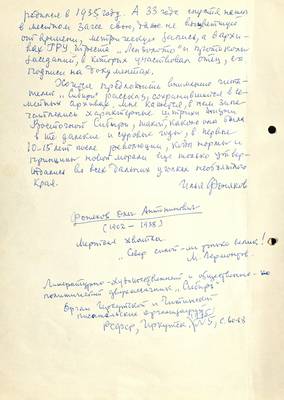 родился в 1935 году. А 33 года спустя нашел
в местном загсе свою, даже не выцветшую
от времени, метрическую запись, а в архи-
вах ГРУ треста „Лензолото“ и протоколы
заседаний, в которых участвовал отец, его
подписи на документах.
Хочется предложить вниманию чита-
телей „Сибири“ рассказ, сохранившийся в се-
мейных архивах. Мне кажется, в нем запе-
чатлелись характерные штрихи жизни
Восточной Сибири, такой, какою она была
в те далекие и суровые годы, в первые
10-15 лет после революции, когда нормы и
принципы новой морали еще только утвер-
ждались во всех дальних уголках необъятного
края.
Илья Фоняков
Фоняков Олег Антонинович
(1902 – 1938)
Мертвая хватка
„Север силой - их только велик!
М. Лермонтов.
Литературно-художественный и общественно-
политический двухмесячник „Сибирь“
Орган Иркутской и Читинской
писательских организаций
РСФСР, Иркутск, №5, с. 60-68